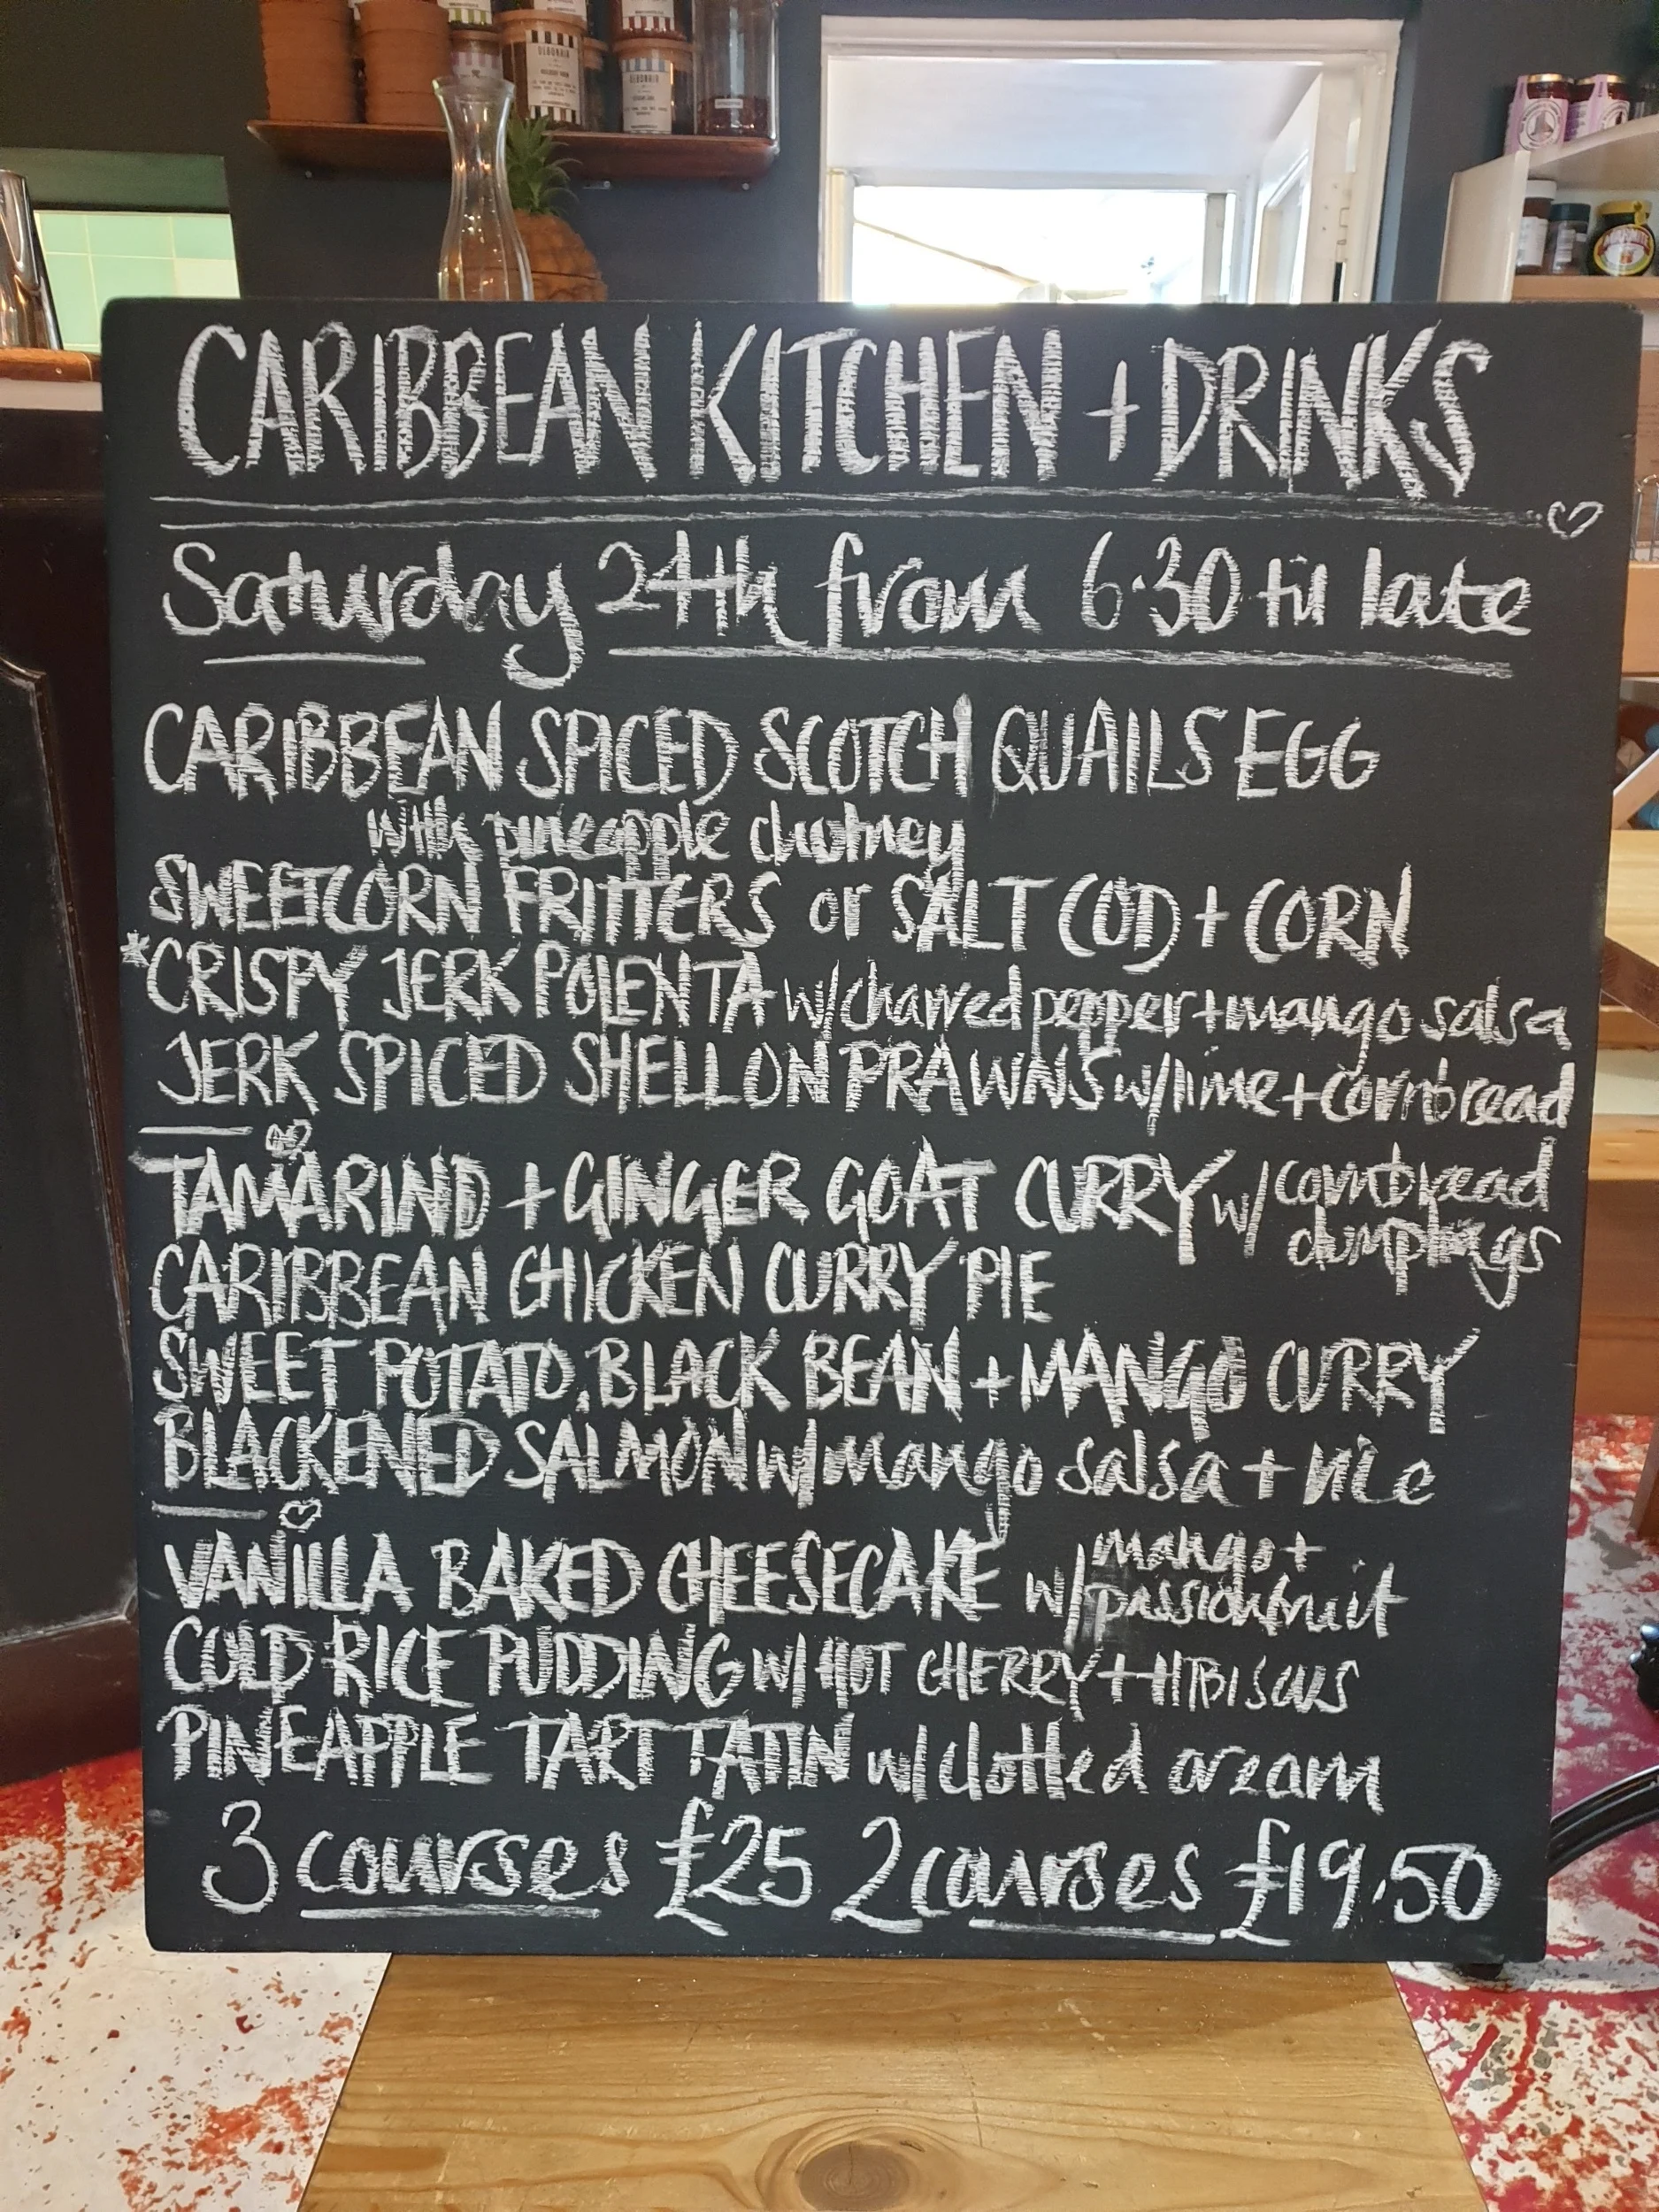 CARIBBEAN KITCHEN + DRINKS
Saturday 24th from 6.30 til late
CARIBBEAN SPICED SCOTCH QUAILS EGG
with pineapple chutney
SWEETCORN FRITTERS or SALT COD + CORN
*CRISPY JERK POLENTA w/charred pepper + mango salsa
JERK SPICED SHELLON PRAWNS w/lime + cornbread
TAMARIND + GINGER GOAT CURRY w/ cornbread
dumplings
CARIBBEAN CHICKEN CURRY PIE
SWEET POTATO, BLACK BEAN + MANGO CURRY
BLACKENED SALMON w/mango salsa + rice
VANILLA BAKED CHEESECAKE w/ mango +
passionfruit
COLD RICE PUDDING w/ HOT CHERRY + HIBISCUS
PINEAPPLE TART TATIN w/clotted cream
3 courses £25 2 courses £19.50